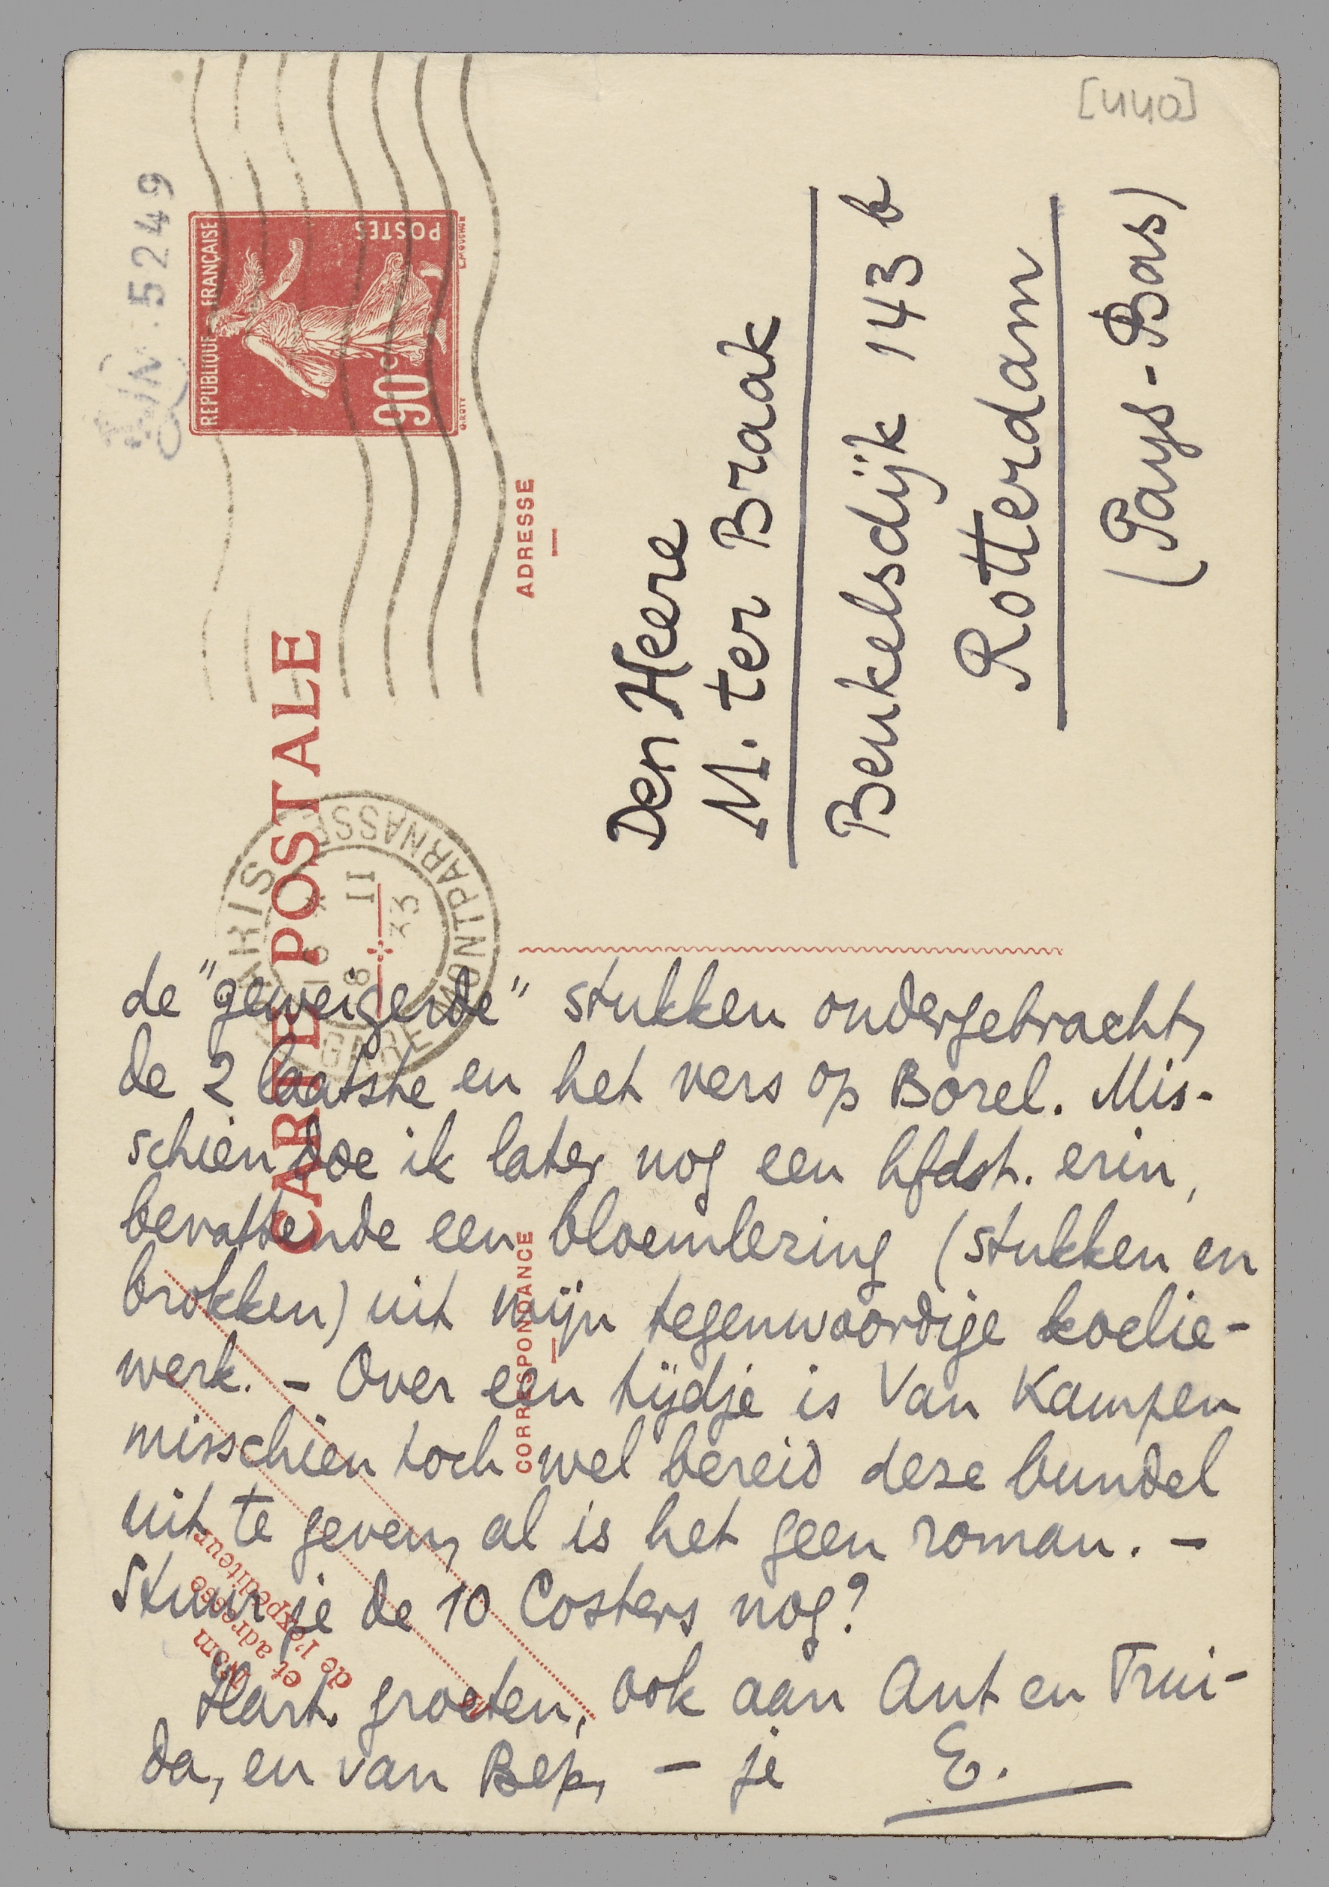 [440]
5249
REPUBLIQUE FRANÇAISE
POSTES
90c
CARTE POSTALE
ADRESSE
CORRESPONDANCE
PARIS
GARE MONTPARNASSE
II
33
Den Heere
M. ter Braak
Beukelsdijk 143 b
Rotterdam
(Pays-Bas)
de "geweigerde" stukken ondergebracht,
de 2 laatste en het vers op Borel. Mis-
schien doe ik later nog een hfdst. erin,
bevattende een bloemlezing (stukken en
brokken) uit mijn tegenwoordige koelie-
werk. – Over een tijdje is Van Kampen
misschien toch wel bereid deze bundel
uit te geven, al is het geen roman. –
Stuur je de 10 Costers nog?
Hart. groeten, ook aan Ant en Trui-
da, en van Bep, – je E.
Nom
et adresse
de l'expéditeur